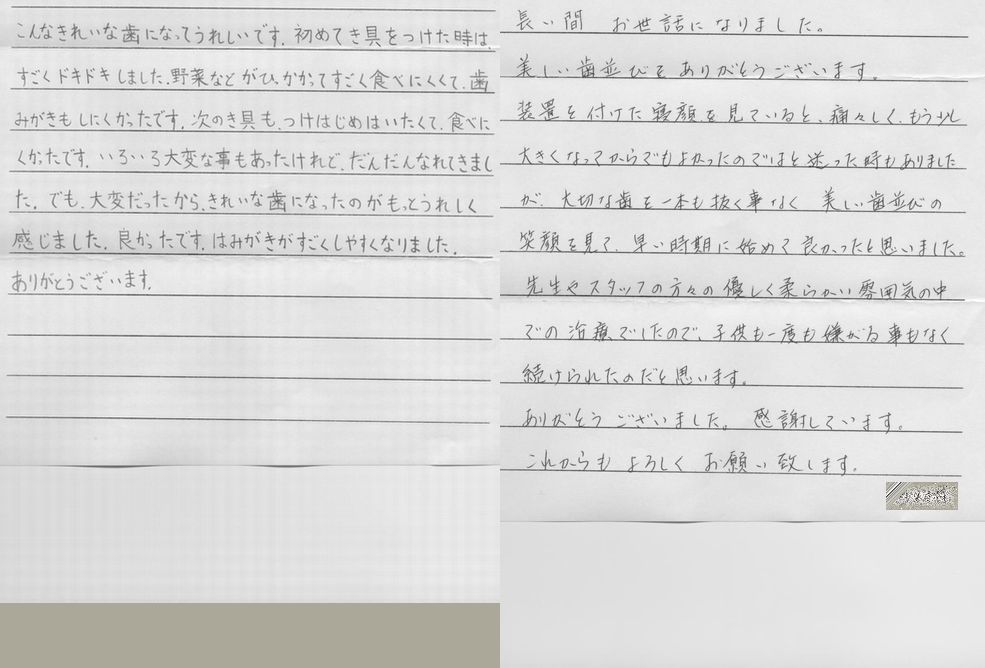 こんなきれいな歯になってうれしいです。初めてき具をつけた時は、
すごくドキドキしました。野菜などがひっかかってすごく食べにくくて、歯
みがきもしにくかったです。次のき具も、つけはじめはいたくて、食べに
くかったです。いろいろ大変な事もあったけれど、だんだんなれてきまし
た。でも、大変だったから、きれいな歯になったのがもっとうれしく
感じました。良かったです。はみがきがすごくしやすくなりました。
ありがとうございます。
長い間 お世話になりました。
美しい歯並びをありがとうございます。
装置を付けた寝顔を見ていると、痛々しく、もう少し
大きくなってからでもよかったのではと迷った時もありました
が、大切な歯を一本も抜く事なく 美しい歯並びの
笑顔を見て、早い時期に始めて良かったと思いました。
先生やスタッフの方々の優しく柔らかい雰囲気の中
での治療でしたので、子供も一度も嫌がる事もなく
続けられたのだと思います。
ありがとうございました。感謝しています。
これからもよろしくお願い致します。